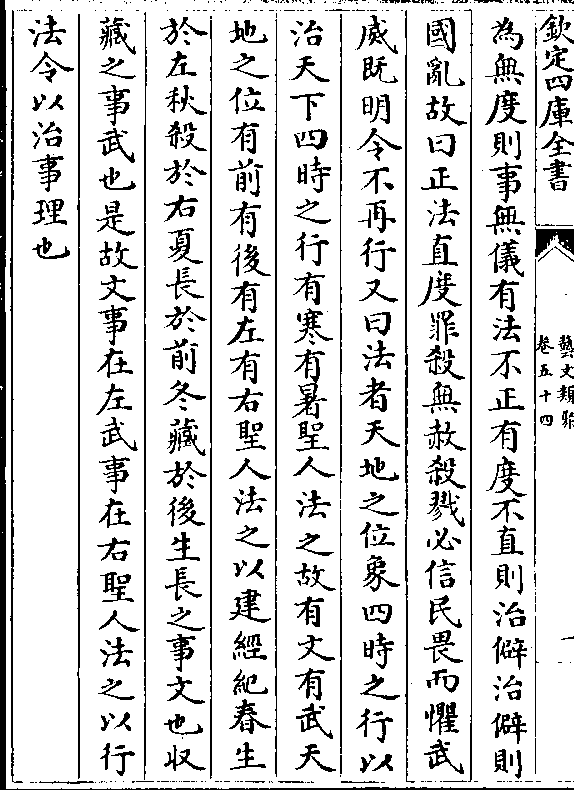 欽定四庫全書
藝文類聚
卷五十四
為無度則事無儀有法不正有度不直則治僻治僻則
國亂故曰正法直度罪殺無赦殺戮必信民畏而懼武
威既明令不再行又曰法者天地之位象四時之行以
治天下四時之行有寒有暑聖人法之故有文有武天
地之位有前有後有左有右聖人法之以建經紀春生
於左秋殺於右夏長於前冬藏於後生長之事文也収
藏之事武也是故文事在左武事在右聖人法之以行
法令以治事理也